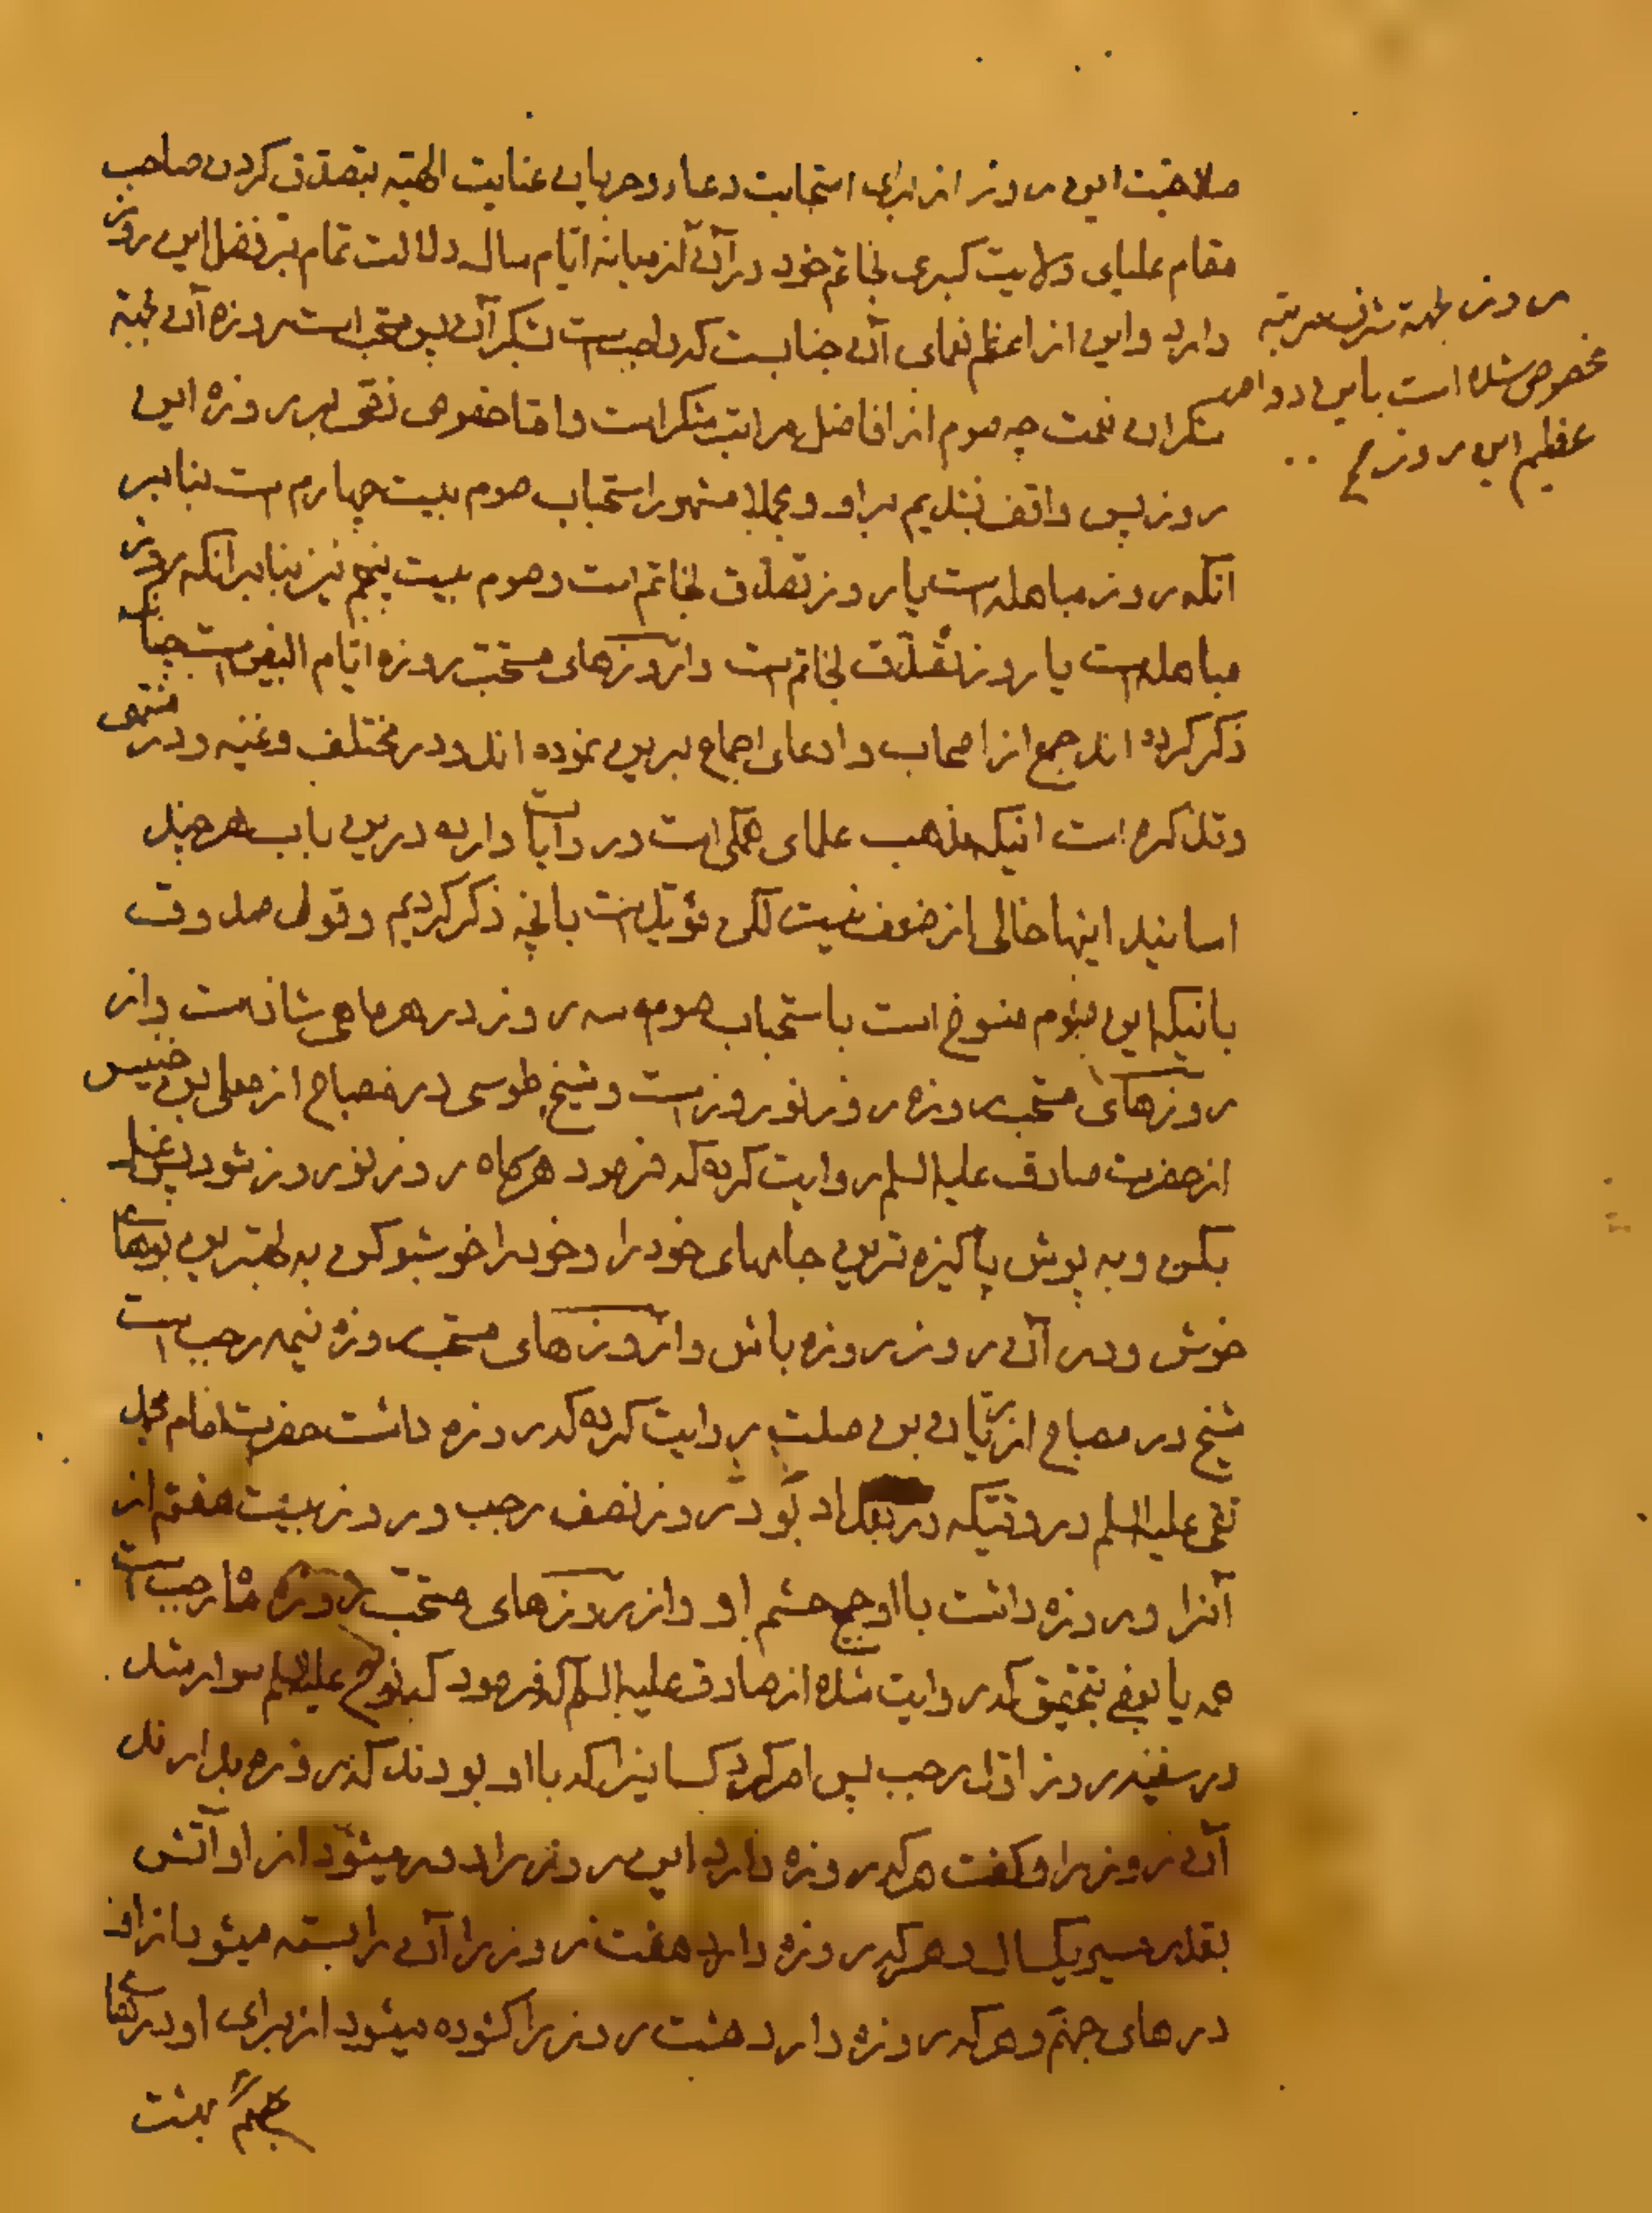 صلاحیت این روز از برای استجابت دعاء و جریان عنایت الهیه بتصدق کردن صاحب
مقام علیای ولایت کبری بخاتم خود در آن از میانه ایام سال دلالت تمام بر فضل این روز
دارد و این از اعظم نعمای آن جنابست که واجبست شکر آن پس مستحب است روزه آن بجهة
شکران نعمت چه صوم از افاضل مراتب شکر است و اما خصوص نصی بر روزه این
روز پس واقف نشدیم بر او و مجملا مشهور استحباب صوم بیست چهارم است بنابر
انکه روز مباهله است یا روز تصدق بخاتم است و صوم بیست پنجم نیز بنابر انکه روز
مباهله است یا روز تصدق بخاتم است و از روزهای مستحب روزه ایام البیض است چنانکه
ذکر کرده اند جمع از اصحاب و ادعای اجماع برین نموده اند و در مختلف و غنیه و در منتهی
و تذکره است اینکه مذهب علمای همکی است و روایات وارده درین باب هر چند
اسانید اینها خالی از ضعف نیست لکن مؤید است بانچه ذکر کردیم و قول صدوق
بانیکه این صوم منسوخ است باستحباب صوم سه روز در هر ماهی شاذ است و از
روزهای مستحب روزه روز نوروز است و شیخ طوسی در مصباح از معلی بن خنیس
از حضرت صادق علیه السلم روایت کرده که فرمود هرکاه روز نوروز شود پس غسل
بکن و به پوش پاکیزه ترین جامهای خود را و خود را خوشبو کن به بهترین بوهای
خوش و در آن روز روزه باش و از روزهای مستحب روزه نیمه رجب است
شیخ در مصباح از ریان بن صلت روایت کرده که روزه داشت حضرت امام محمد
تقی علیه السلم در وقتیکه در بغداد بود در روز نصف رجب و روز بیست هفتم از
آنرا و روزه داشت با او جمیع حشم او و از روزهای مستحب روزه ماه رجب است
همه یا بعضی بتحقیق که روایت شده از صادق علیه السلم که فرمود که نوح علیه السلم سوار شد
در سفینه روز اول رجب پس امر کرد کسانیرا که با او بودند که روزه بدارند
آن روز را و کفت هر که روزه دارد این روز را دور میشود از او آتش
بقدر مسیر یکسال و هر که روزه دارد هفت روز را آن را بسته میشود از او
درهای جهنم و هر که روزه دارد هشت روز را کشوده میشود از برای او درهای
بهشت
روز بجهة شرف مرتبه
مخصوص شده است باین دو امر
عظیم این روز